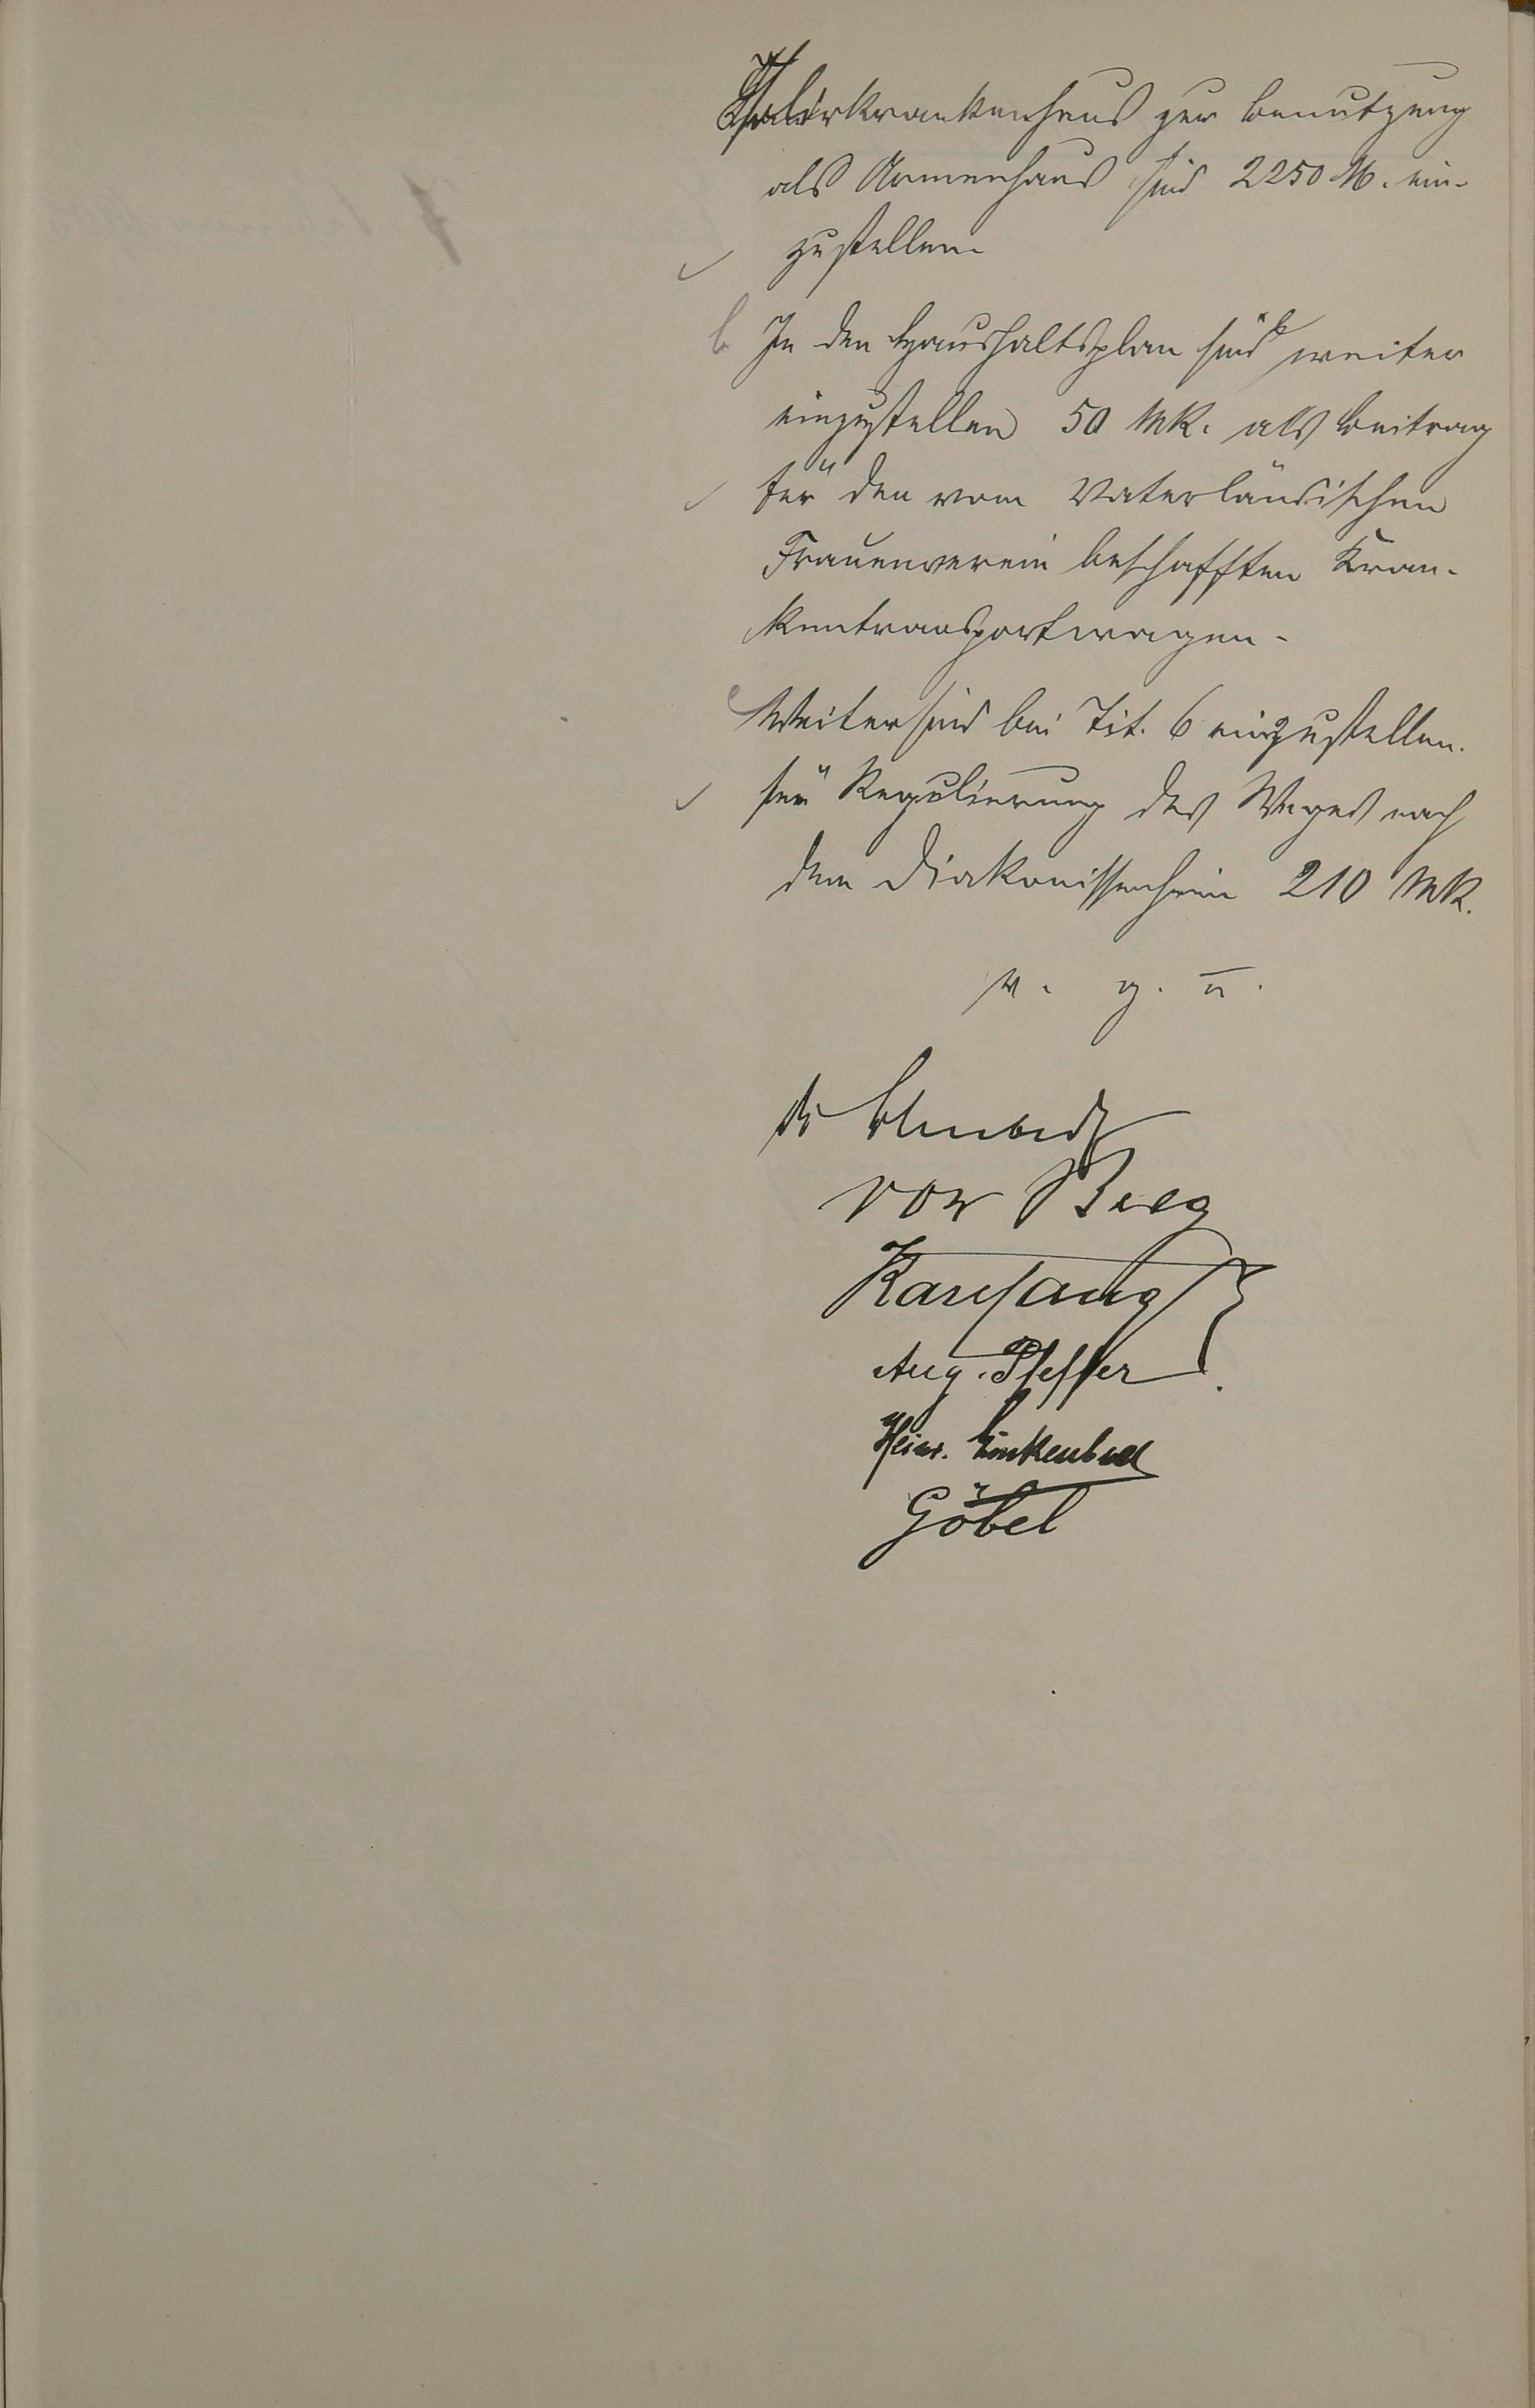 krankenhaus zur Benutzung
als Armenhaus sind 2250 M. ein-
zustellen.
b In den Haushaltsplan sind weiter
einzustellen 50 Mk. als Beitrag
für den vom Vaterländischen
Frauenverein beschafften Kran-
kentransportwagen.
c Weiter sind bei Tit. 6 einzustellen
für Regulierung des Weges nach
dem Diakonissenheim 210 Mk.
v. g. u.
vom Berg
Aug. Pfeffer
Heinr.
Göbel